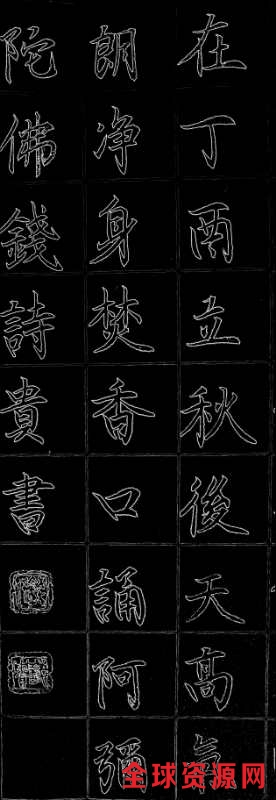 在丁酉立秋後天高氣
朗净身焚香口誦阿彌
陀佛錢詩貴書
全球资源网